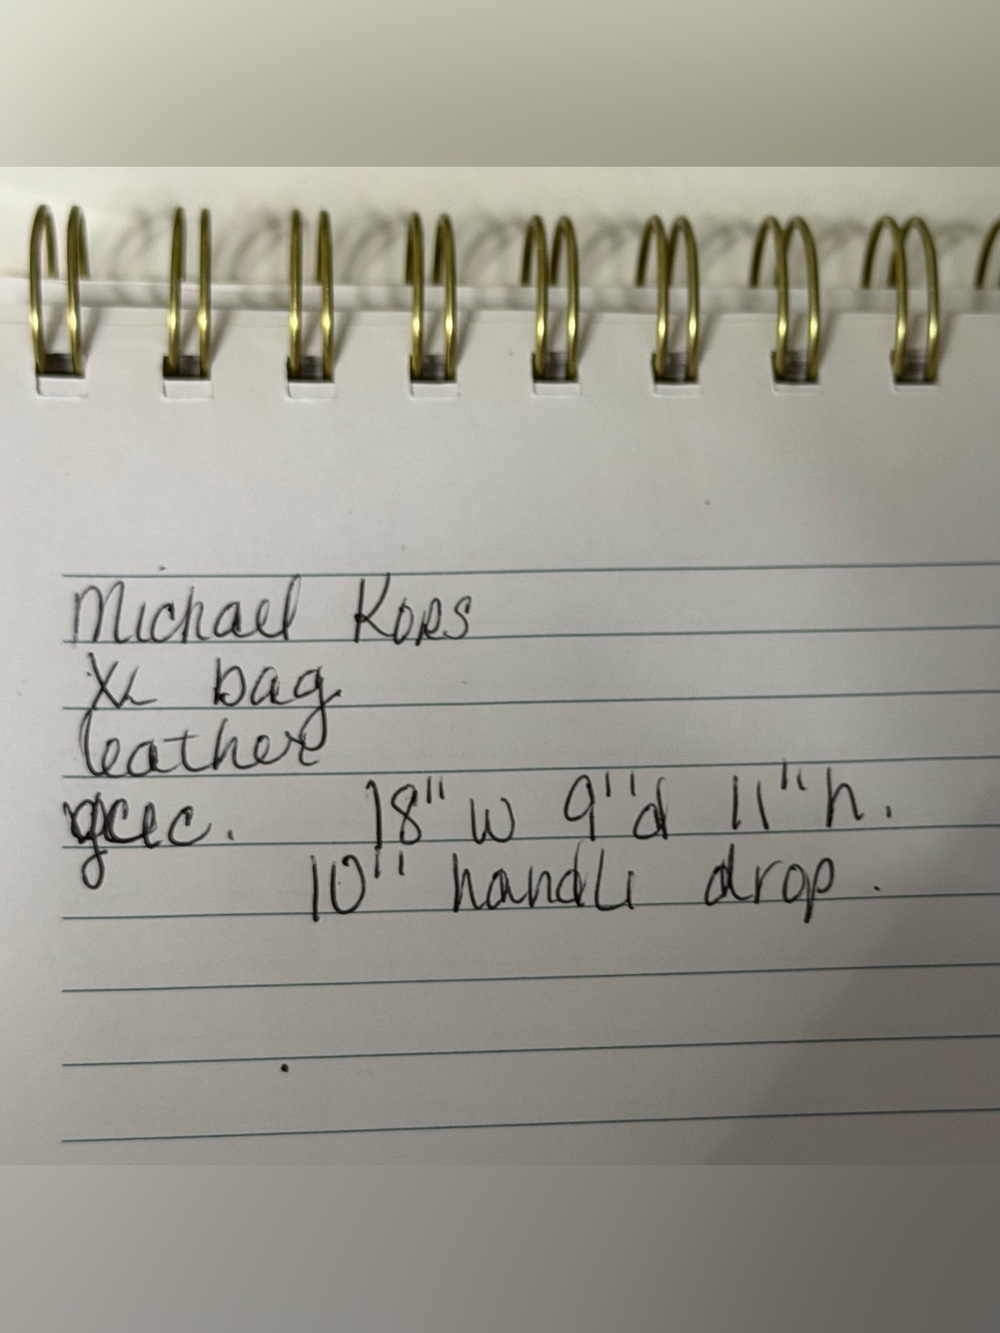 Michael Kors
XL bag
leather
18" w 9" d 11" h.
10" handle drop.